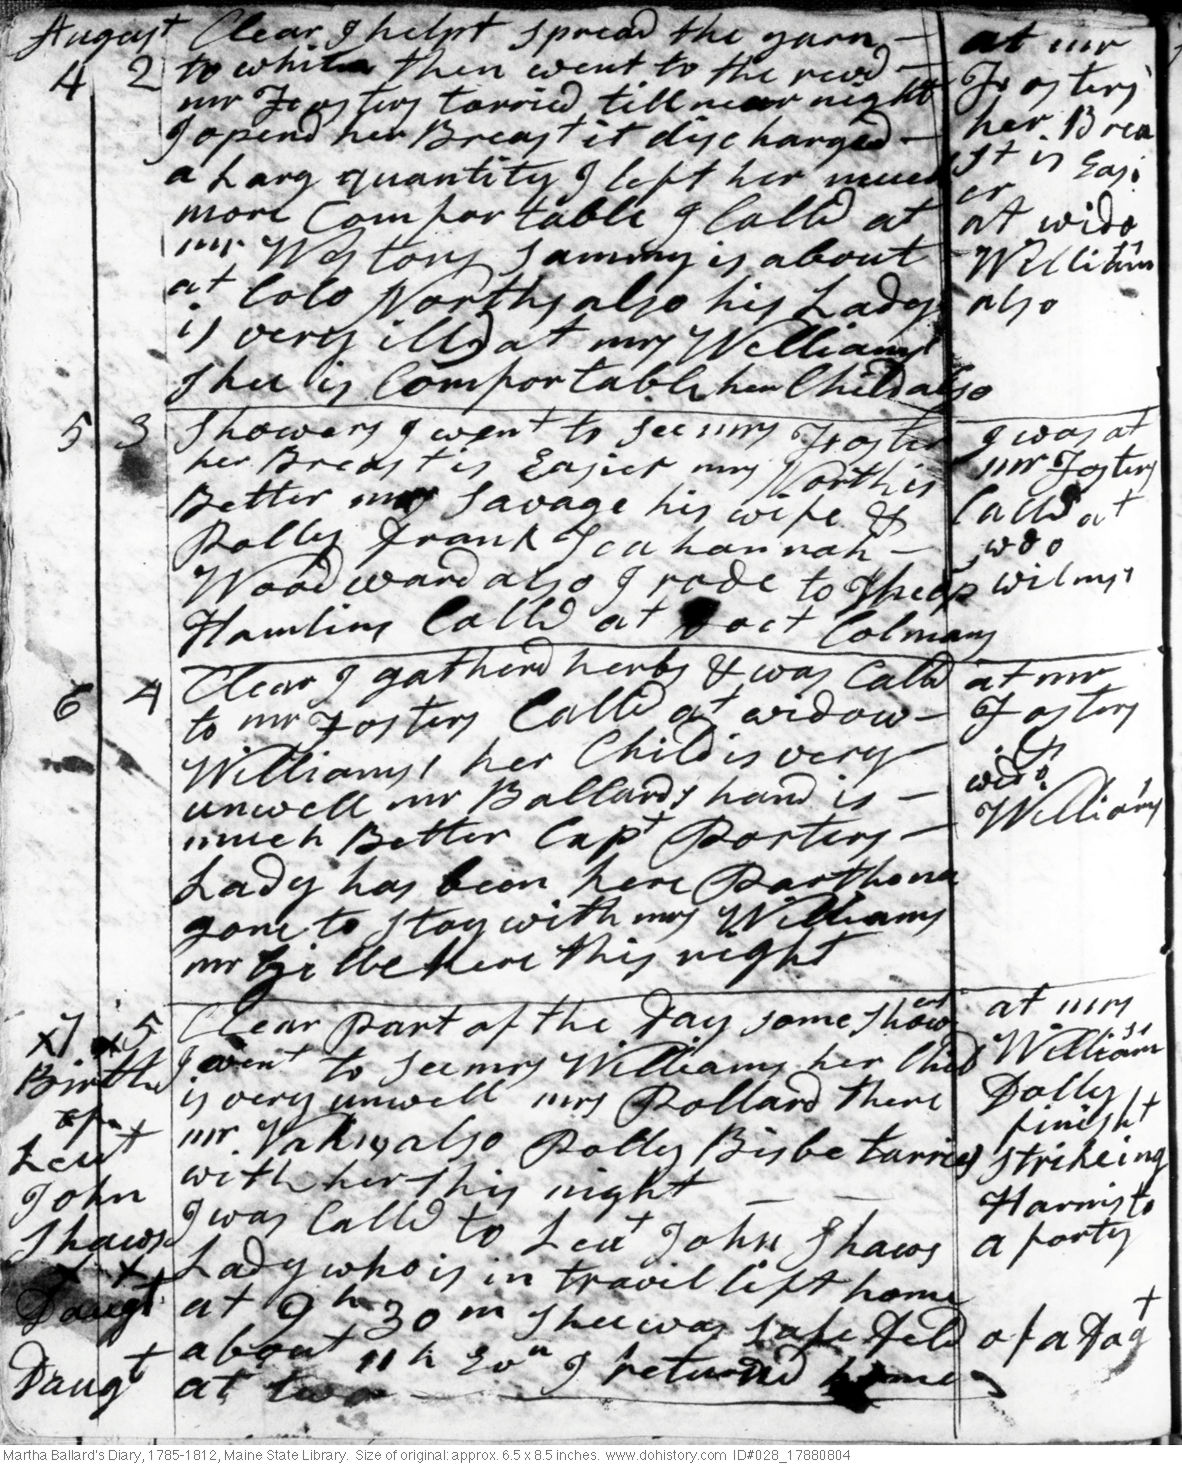 August Clear I helpt spread the yarn - at mr
4 2 to whiten then went to the revd - Fosters
mr Fosters tarried till near night her Brea
I opend her Breast it discharged - st is Easi
a Larg quantity I left her much er
more Comfortable I Calld at at wido
mr Westons Sammy is about - Williams
at Colo Norths also his Lady also
is very illd at mrs Williams
Shee is Comfortable her Child also
5 3 Showers I went to see mrs Foster I was at
her Breast is Easier mrs North is mr Fosters
Better mr Savage his wife & Calld at
Polly Frank Hannah - wdo
Woodward also I rode to wilms
Hamlins Calld at Doct Colmans
6 4 Clear I gatherd herbs & was Calld at mr
to mr Fosters Calld at widow - Fosters
Williams, her Child is very - &
unwell mr Ballards hand is - wido
much Better Capt Porters - Williams
Lady has been here Parthena
gone to stay with mrs Williams
mr Gilbe here this night
x7 x5 Clear part of the Day some showers at mrs
Birth I went to see mrs Williams her Child Williams
is very unwell mrs Pollard there Dolly
of mr also Polly Bisbe tarries finisht
Leut with her this night - - strikeing
John I was Calld to Leut John Shaws Harnis to
Shaws Lady who is in travil left home a forty
x x at 9 h 30 m shee was safe Deld of a Dagt
Daugt about 11 h Evn I returnd home
Daugt at two